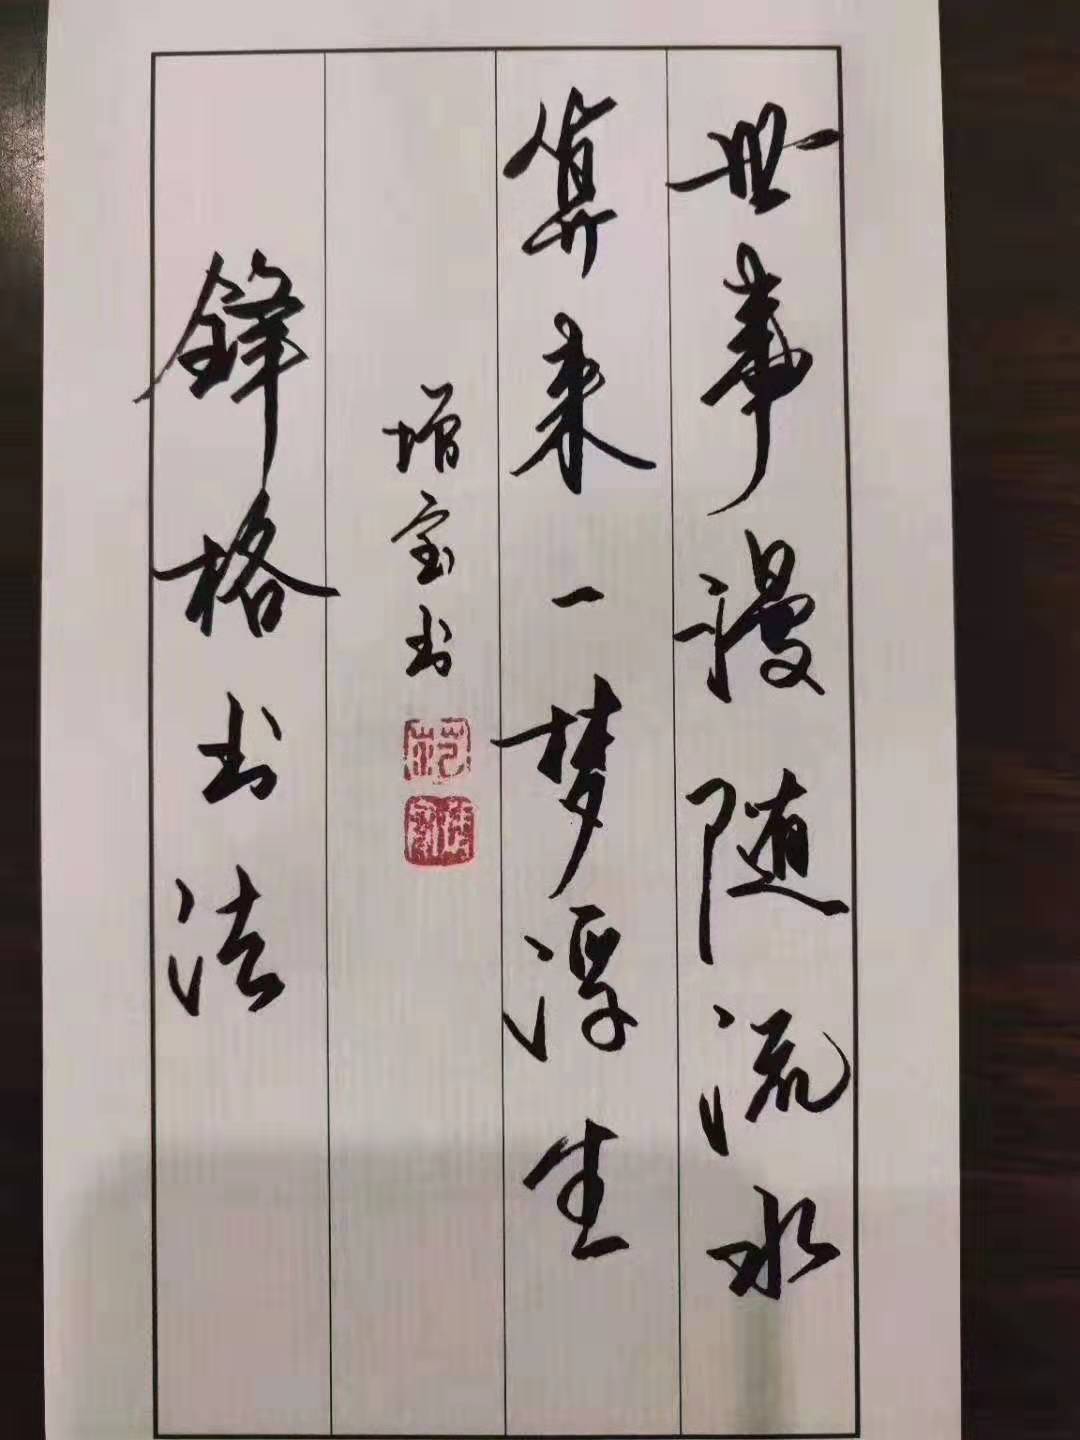 世事漫随流水
算来一梦浮生
增宝书
锋格书法